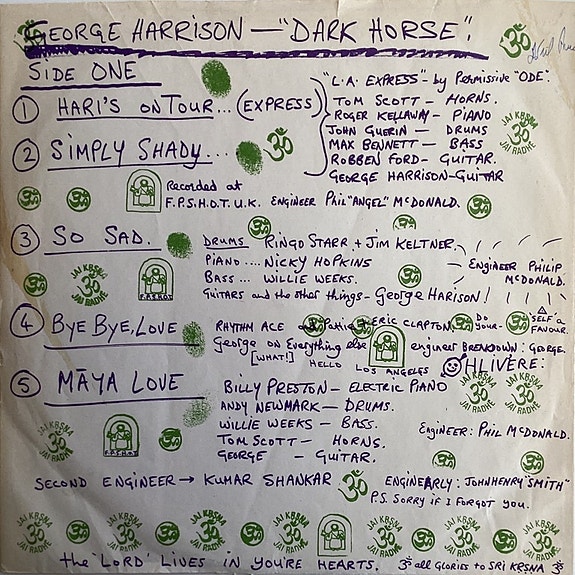 GEORGE HARRISON — "DARK HORSE".
SIDE ONE
① HARI'S ON TOUR... (EXPRESS)
"L.A. EXPRESS" - by Permissive "ODE".
TOM SCOTT — HORNS.
ROGER KELLAWAY - PIANO
JOHN GUERIN — DRUMS
MAX BENNETT — BASS
ROBBEN FORD - GUITAR.
GEORGE HARRISON - GUITAR
② SIMPLY SHADY...
Recorded at
F.P.S.H.O.T. U.K. ENGINEER Phil "ANGEL" McDONALD.
③ SO SAD.
DRUMS RINGO STARR + JIM KELTNER
PIANO .... NICKY HOPKINS
BASS ... WILLIE WEEKS.
GUITARS and the other things - GEORGE HARISON!
ENGINEER PHILIP
McDONALD.
④ BYE BYE, LOVE
RHYTHM ACE and Pattie + ERIC CLAPTON
DO
YOUR-
SELF A
FAVOUR.
George on Everything else
[WHAT!]
engineer BREAKDOWN: GEORGE.
HELLO LOS ANGELES
OHLIVERE:
⑤ MĀYA LOVE
BILLY PRESTON — ELECTRIC PIANO
ANDY NEWMARK — DRUMS.
WILLIE WEEKS — BASS.
TOM SCOTT — HORNS.
GEORGE — GUITAR.
ENGINEER: PHIL McDONALD.
SECOND ENGINEER → KUMAR SHANKAR
ENGINEARLY: JOHN HENRY "SMITH"
P.S. SORRY IF I FORGOT YOU.
JAI KRSNA
ॐ
JAI RADHE
F.P.S.H.O.T.
the 'LORD' LIVES IN YOU'RE HEARTS. ॐ all Glories to SRI KRSNA ॐ